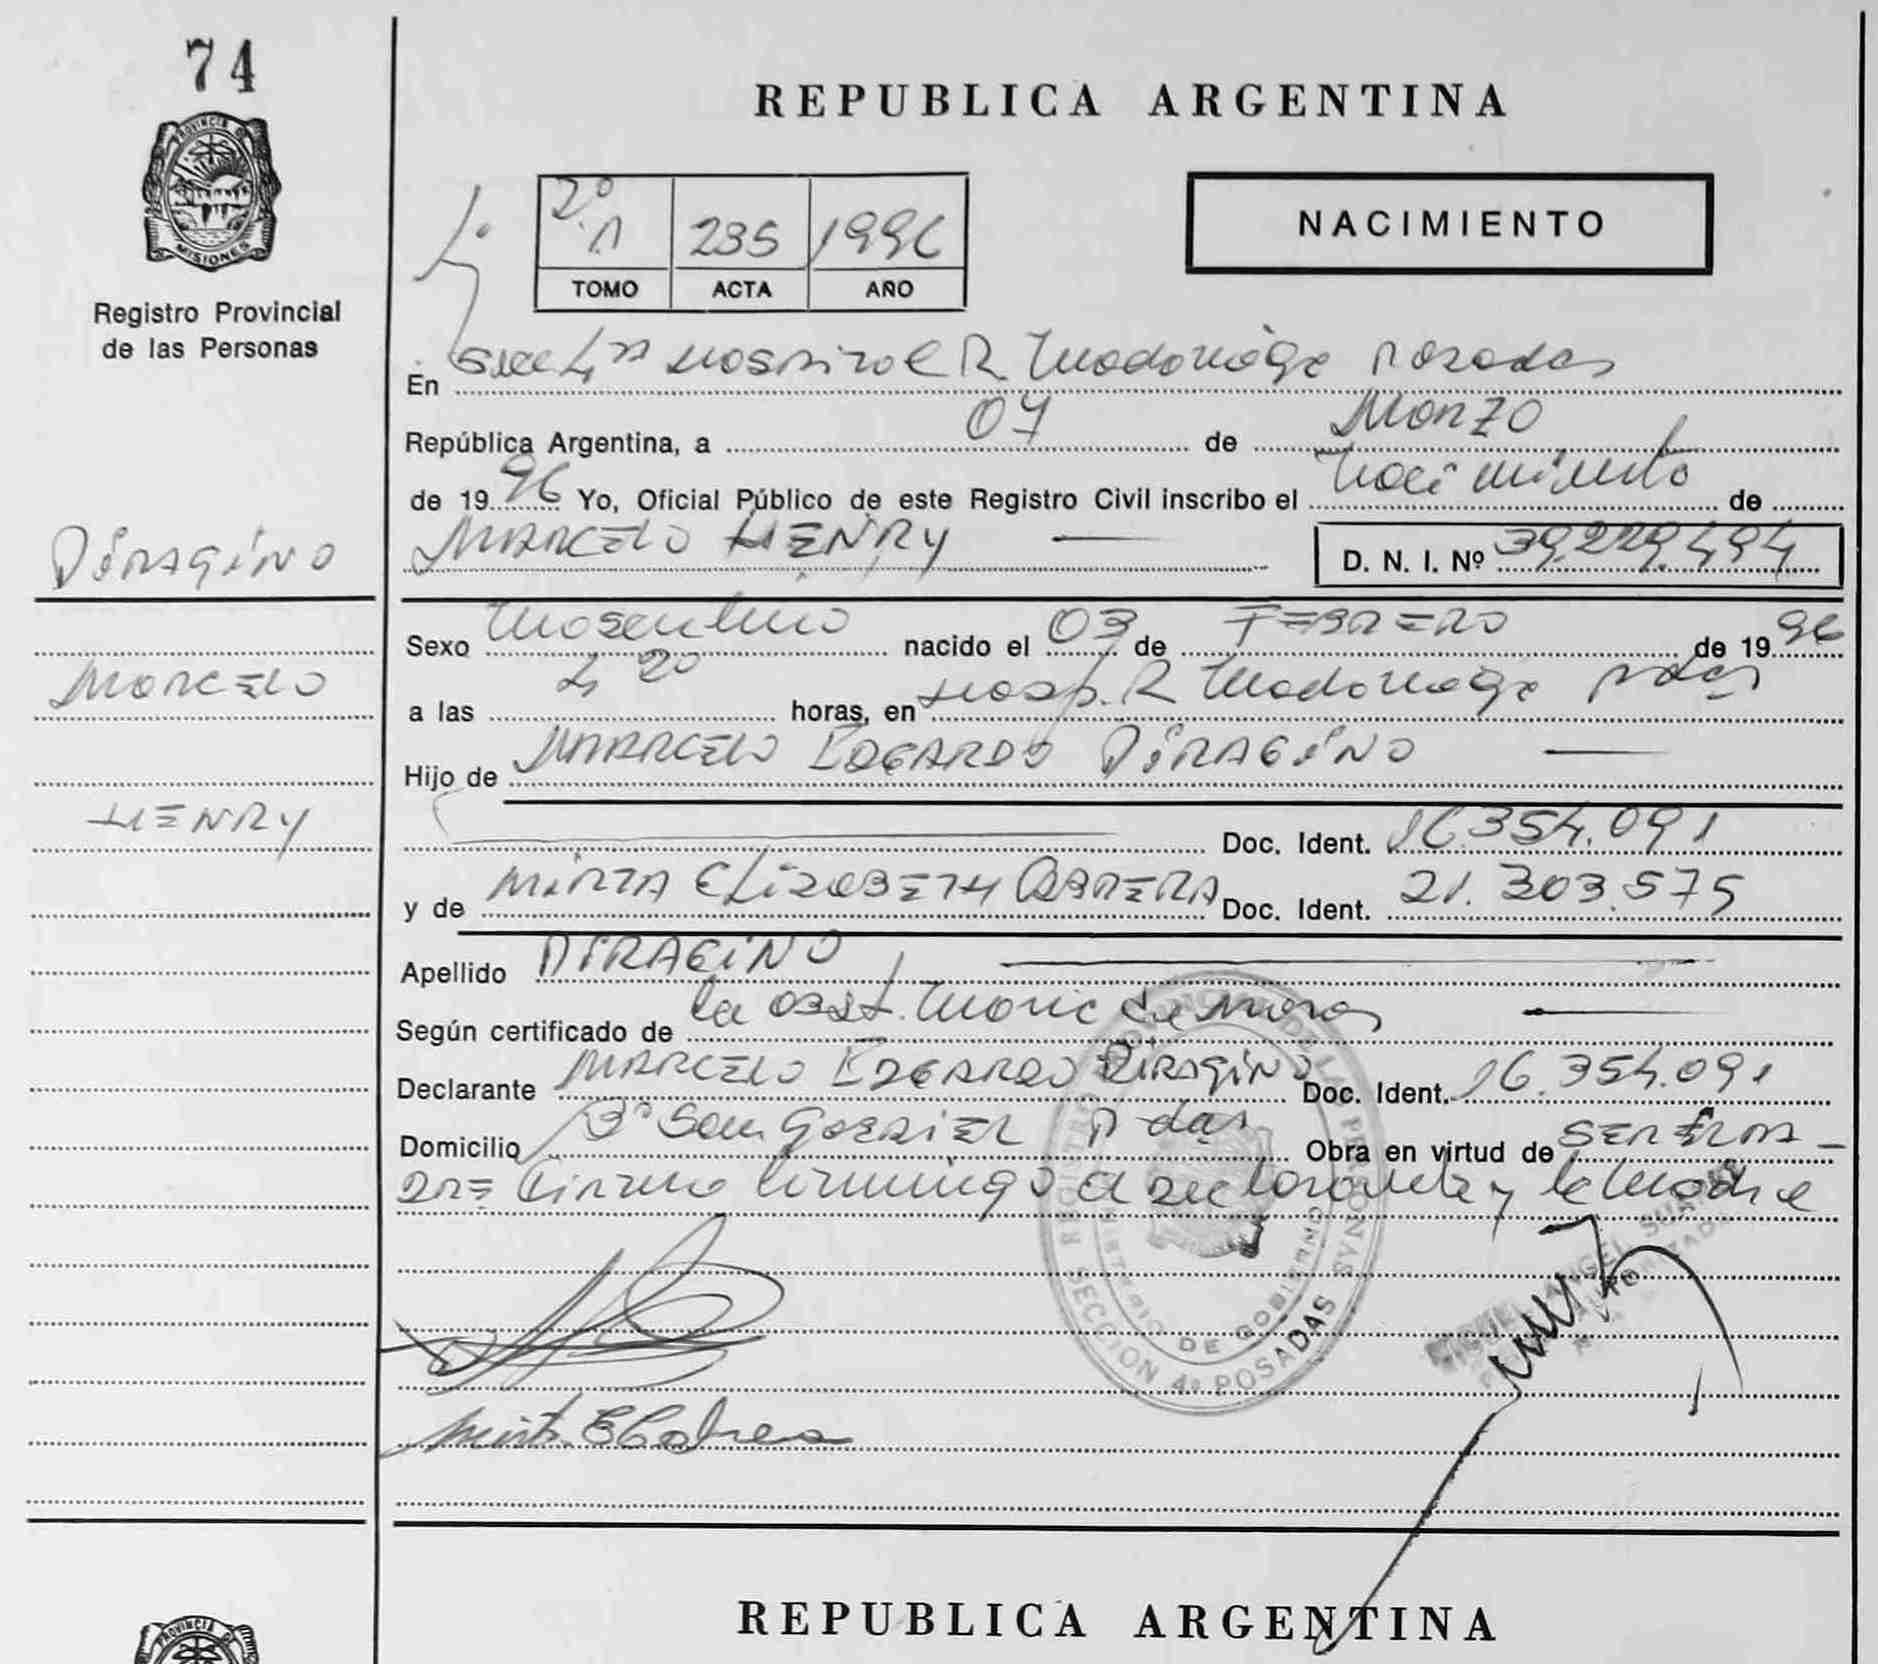 74
REPUBLICA ARGENTINA
PROVINCIA DE
MISIONES
Registro Provincial
de las Personas
2º
1 235 1996
TOMO ACTA AÑO
NACIMIENTO
En Secc 4ta Hospital R Madariaga Posadas
República Argentina, a 07 de Marzo
de 1996 Yo, Oficial Público de este Registro Civil inscribo el Nacimiento de
PIRAGINO
MARCELO HENRY — D. N. I. Nº 39.229.494
Sexo Masculino nacido el 03 de FEBRERO de 1996
MARCELO
a las 4 20 horas, en Hosp. R Madariaga Pdas
Hijo de MARCELO EDGARDO PIRAGINO —
HENRY
Doc. Ident. 16.354.091
y de MIRTA ELIZABETH CABRERA Doc. Ident. 21.303.575
Apellido PIRAGINO
Según certificado de la Obst. de —
Declarante MARCELO EDGARDO PIRAGINO Doc. Ident. 16.354.091
Domicilio Bº San GABRIEL Pdas Obra en virtud de SER EL PA-
DRE firmando el declarante y la Madre
REGISTRO PROVINCIAL DE LAS PERSONAS
MINISTERIO DE GOBIERNO
SECCION 4ª POSADAS
MIGUEL ANGEL SUAREZ
Mirta E Cabrera
REPUBLICA ARGENTINA
PROVINCIA DE